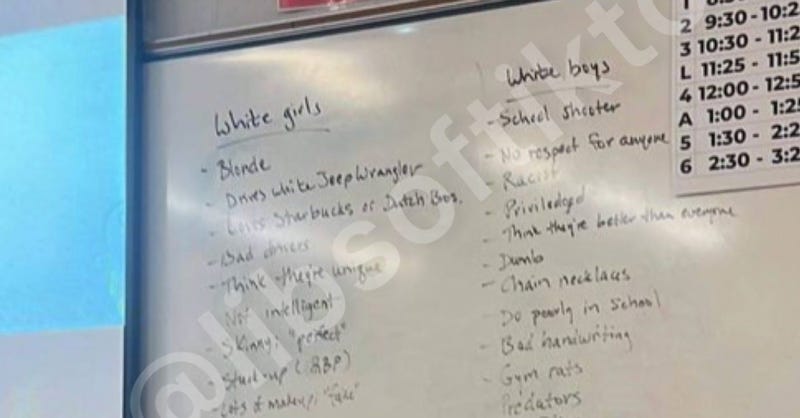 White girls
- Blonde
- Drives white Jeep Wrangler
- Loves Starbucks or Dutch Bros.
- Bad drivers
- Think they're unique
Not intelligent
- Skinny; "perfect"
- Stuck-up (
- Lots of makeup; "fake"
White boys
- School shooter
- No respect for anyone
- Racist
- Priviledged
- Think they're better than everyone
- Dumb
- Chain necklaces
- Do poorly in School
- Bad handwriting
- Gym rats
- Predators
2 9:30 - 10:2
3 10:30 - 11:2
L 11:25 - 11:5
4 12:00 - 12:5
A 1:00 - 1:25
5 1:30 - 2:2
6 2:30 - 3:2
@libsoftikto